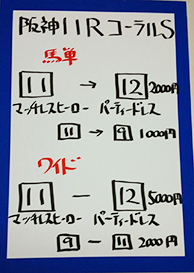 阪神11RコーラルS
馬単
11 → 12 2000円
マッチレスヒーロー パーティードレス
11 → 9 1000円
ワイド
11 — 12 5000円
マッチレスヒーロー パーティドレス
9 — 11 2000円